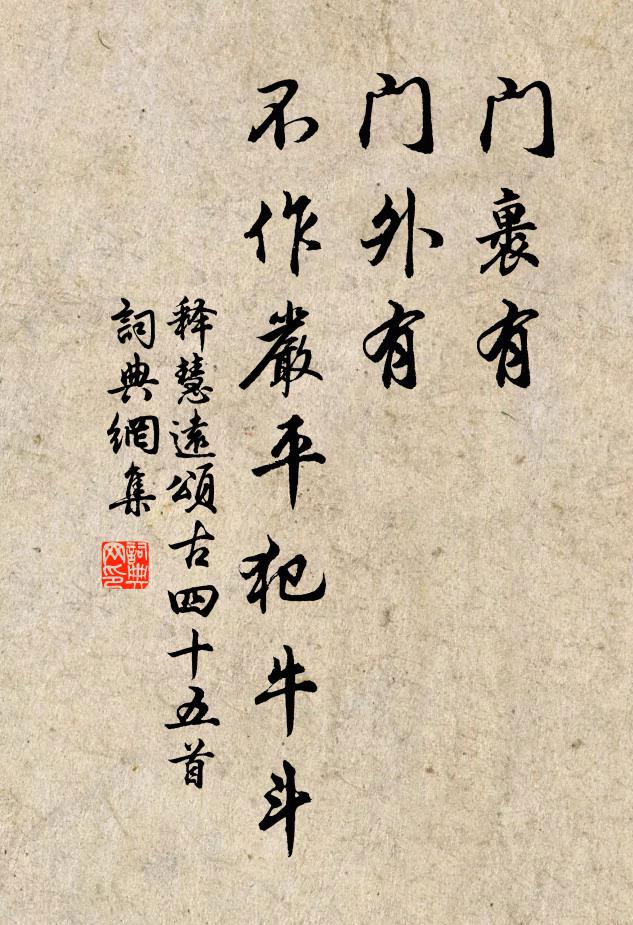 门裏有
门外有
不作嚴平犯牛斗
释慧遠頌古四十五首
詞典網集
詞典网印